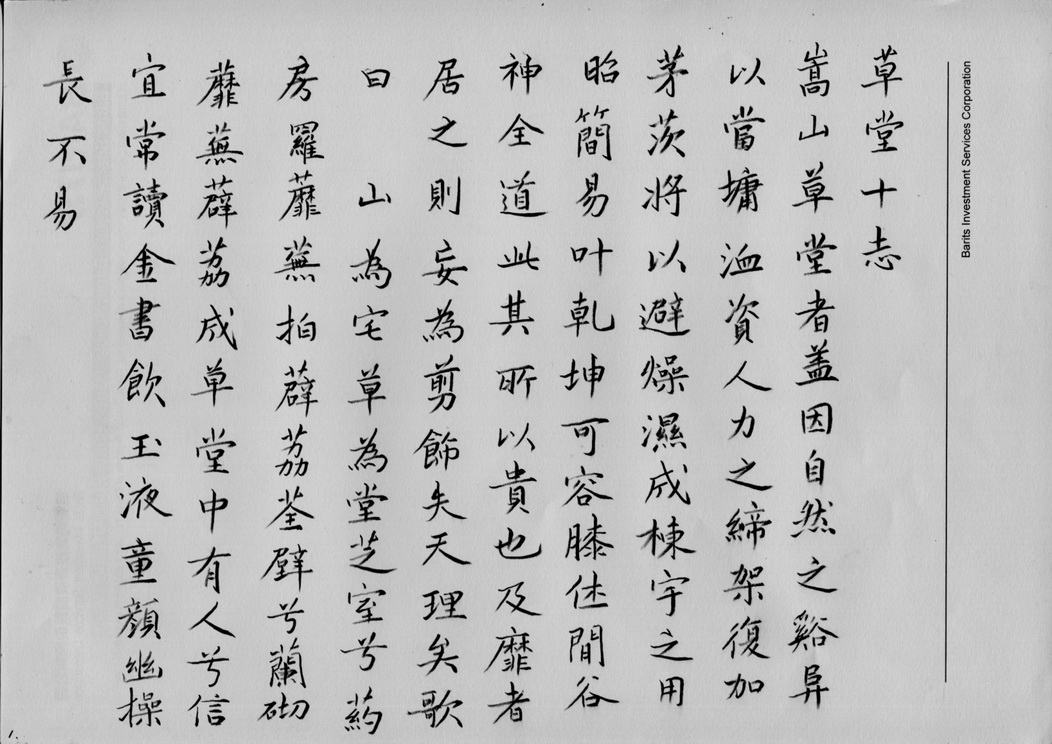 草堂十志
嵩山草堂者盖因自然之谿阜
以當墉洫資人力之締架復加
茅茨將以避燥濕成棟宇之用
昭簡易叶乾坤可容膝休閒谷
神全道此其所以貴也及靡者
居之則妄為剪飾失天理矣歌
曰 山為宅草為堂芝室兮葯
房羅蘼蕪拍薜荔荃壁兮蘭砌
蘼蕪薜荔成草堂中有人兮信
宜常讀金書飲玉液童顏幽操
長不易
Barits Investment Services Corporation